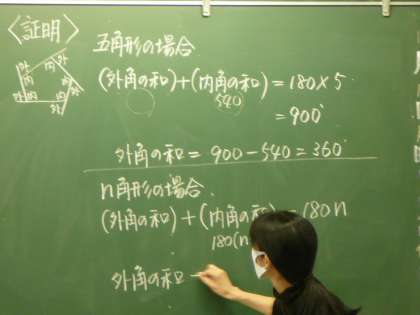 〈証明〉
五角形の場合
(外角の和)+(内角の和)=180×5
540
=900°
外角の和=900-540=360°
n角形の場合
(外角の和)+(内角の和)=180n
180(n
外角の和
外
内
外
内
外
内
外
内
外
内